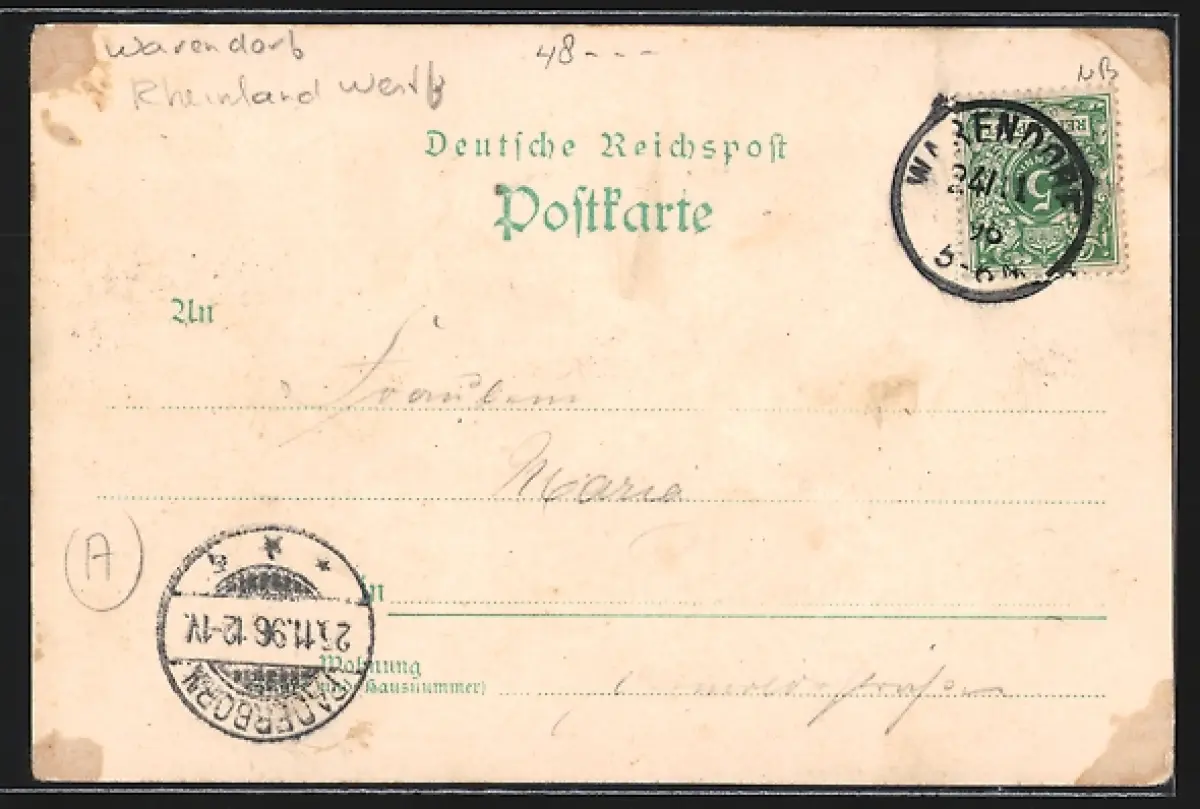 Warendorf
Rheinland Westf
48---
NB
Deutsche Reichspost
Postkarte
WARENDORF
24/11
96
5-6N
5
An
Fräulein
Maria
A
in
25.11.96 12-1V.
PADERBORN
Wohnung
(und Hausnummer)